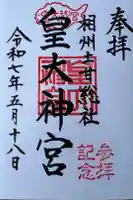 奉拝
相州土甘総社
皇大神宮
令和七年五月十八日
参拝
記念